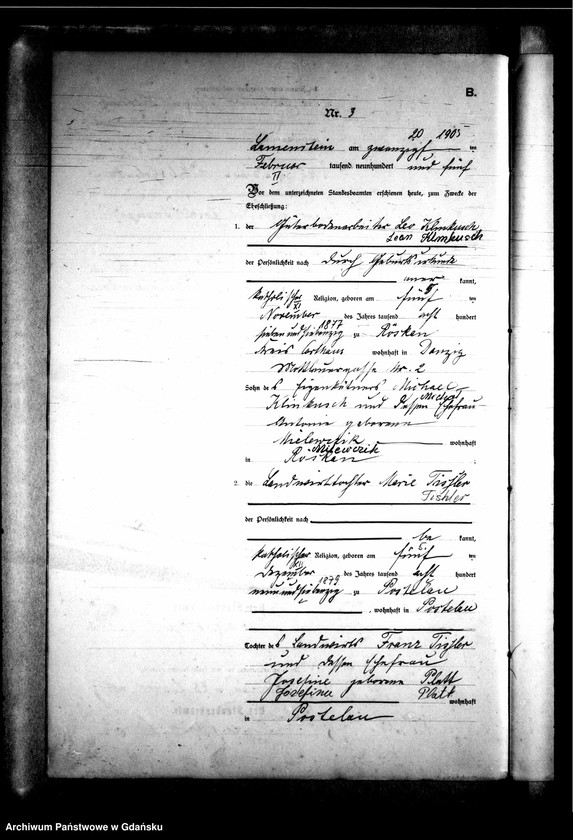 B.
Nr. 3
20 1905
Lamenstein am zwanzigst ten
Februar tausend neunhundert und fünf
II
Vor dem unterzeichneten Standesbeamten erschienen heute, zum Zwecke der
Eheschließung:
1. der Güterbodenarbeiter Leo Klinkusch
Leon Klinkusch
der Persönlichkeit nach durch Geburtsurkunde
aner kannt,
katholischer Religion, geboren am fünf ten
XI
November des Jahres tausend acht hundert
1877
sieben und siebenzig zu Rösken
Kreis Carthaus wohnhaft in Danzig
Mottlauergasse Nr. 2
Sohn des Eigenkätners Michael
Klinkusch und dessen Ehefrau
Antonie geborene
Mielewczik wohnhaft
Milewczik
in Rösken
2. die Landwirttochter Marie Tischler
Tischler
der Persönlichkeit nach
be kannt,
katholischer Religion, geboren am fünf ten
XII
Dezember des Jahres tausend acht hundert
1879
neun und siebenzig zu Postelau
, wohnhaft in Postelau
Tochter des Landwirts Franz Tischler
und dessen Ehefrau
Josefine geborene Platt
Josefina Platt
wohnhaft
in Postelau
Archiwum Państwowe w Gdańsku